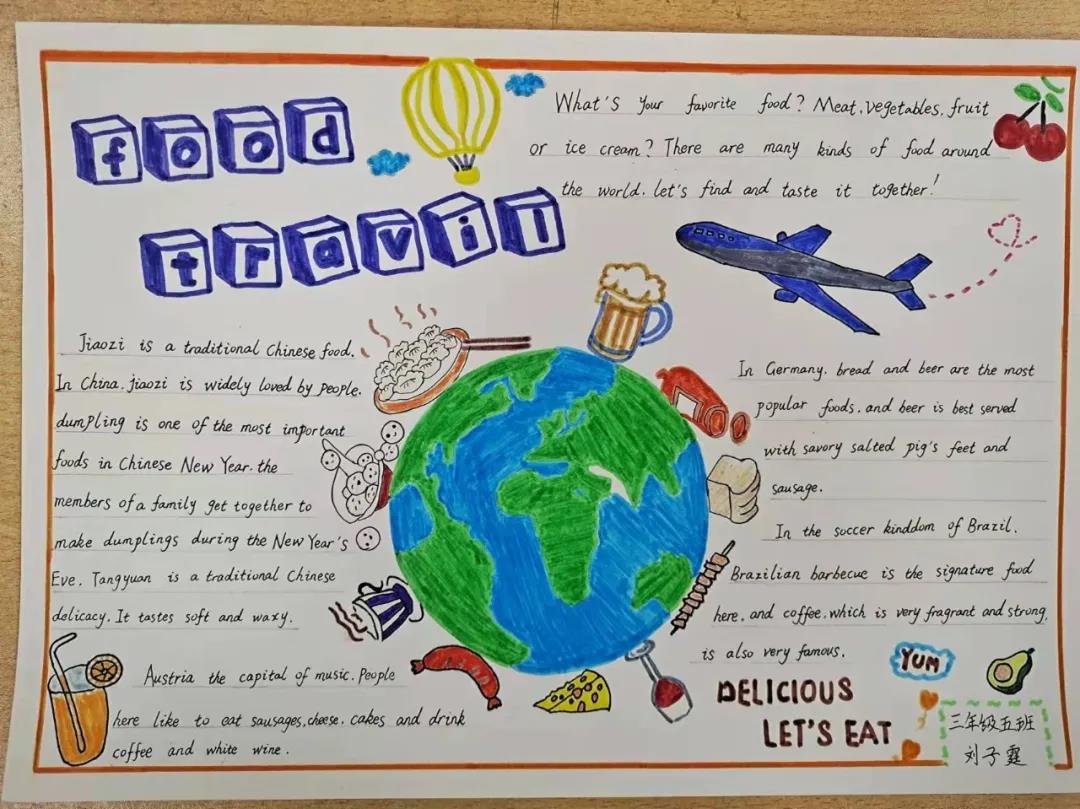 food
travil
What's your favorite food? Meat, vegetables, fruit
or ice cream? There are many kinds of food around
the world. let's find and taste it together!
Jiaozi is a traditional Chinese food.
In China, jiaozi is widely loved by people.
dumpling is one of the most important
foods in Chinese New Year. the
members of a family get together to
make dumplings during the New Year's
Eve. Tangyuan is a traditional Chinese
delicacy. It tastes soft and waxy.
Austria the capital of music. People
here like to eat sausages, cheese, cakes and drink
coffee and white wine.
In Germany, bread and beer are the most
popular foods, and beer is best served
with savory salted pig's feet and
sausage.
In the soccer kinddom of Brazil,
Brazilian barbecue is the signature food
here, and coffee, which is very fragrant and strong,
is also very famous.
YUM
DELICIOUS
LET'S EAT
三年级五班
刘子霆